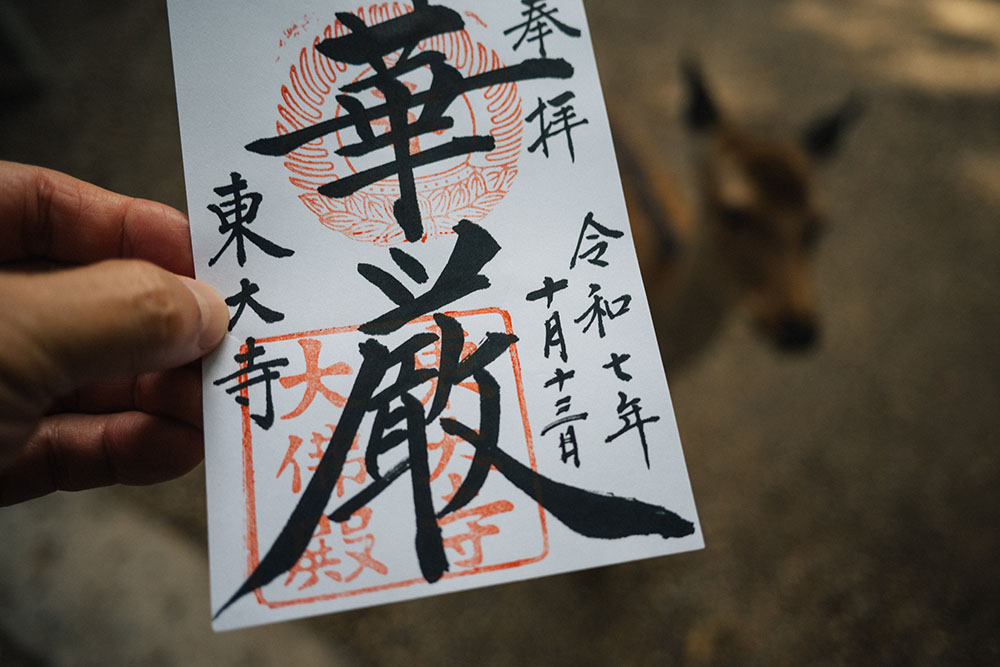 奉拝
令和七年
十月十三日
華厳
東大寺
大佛殿
東大寺